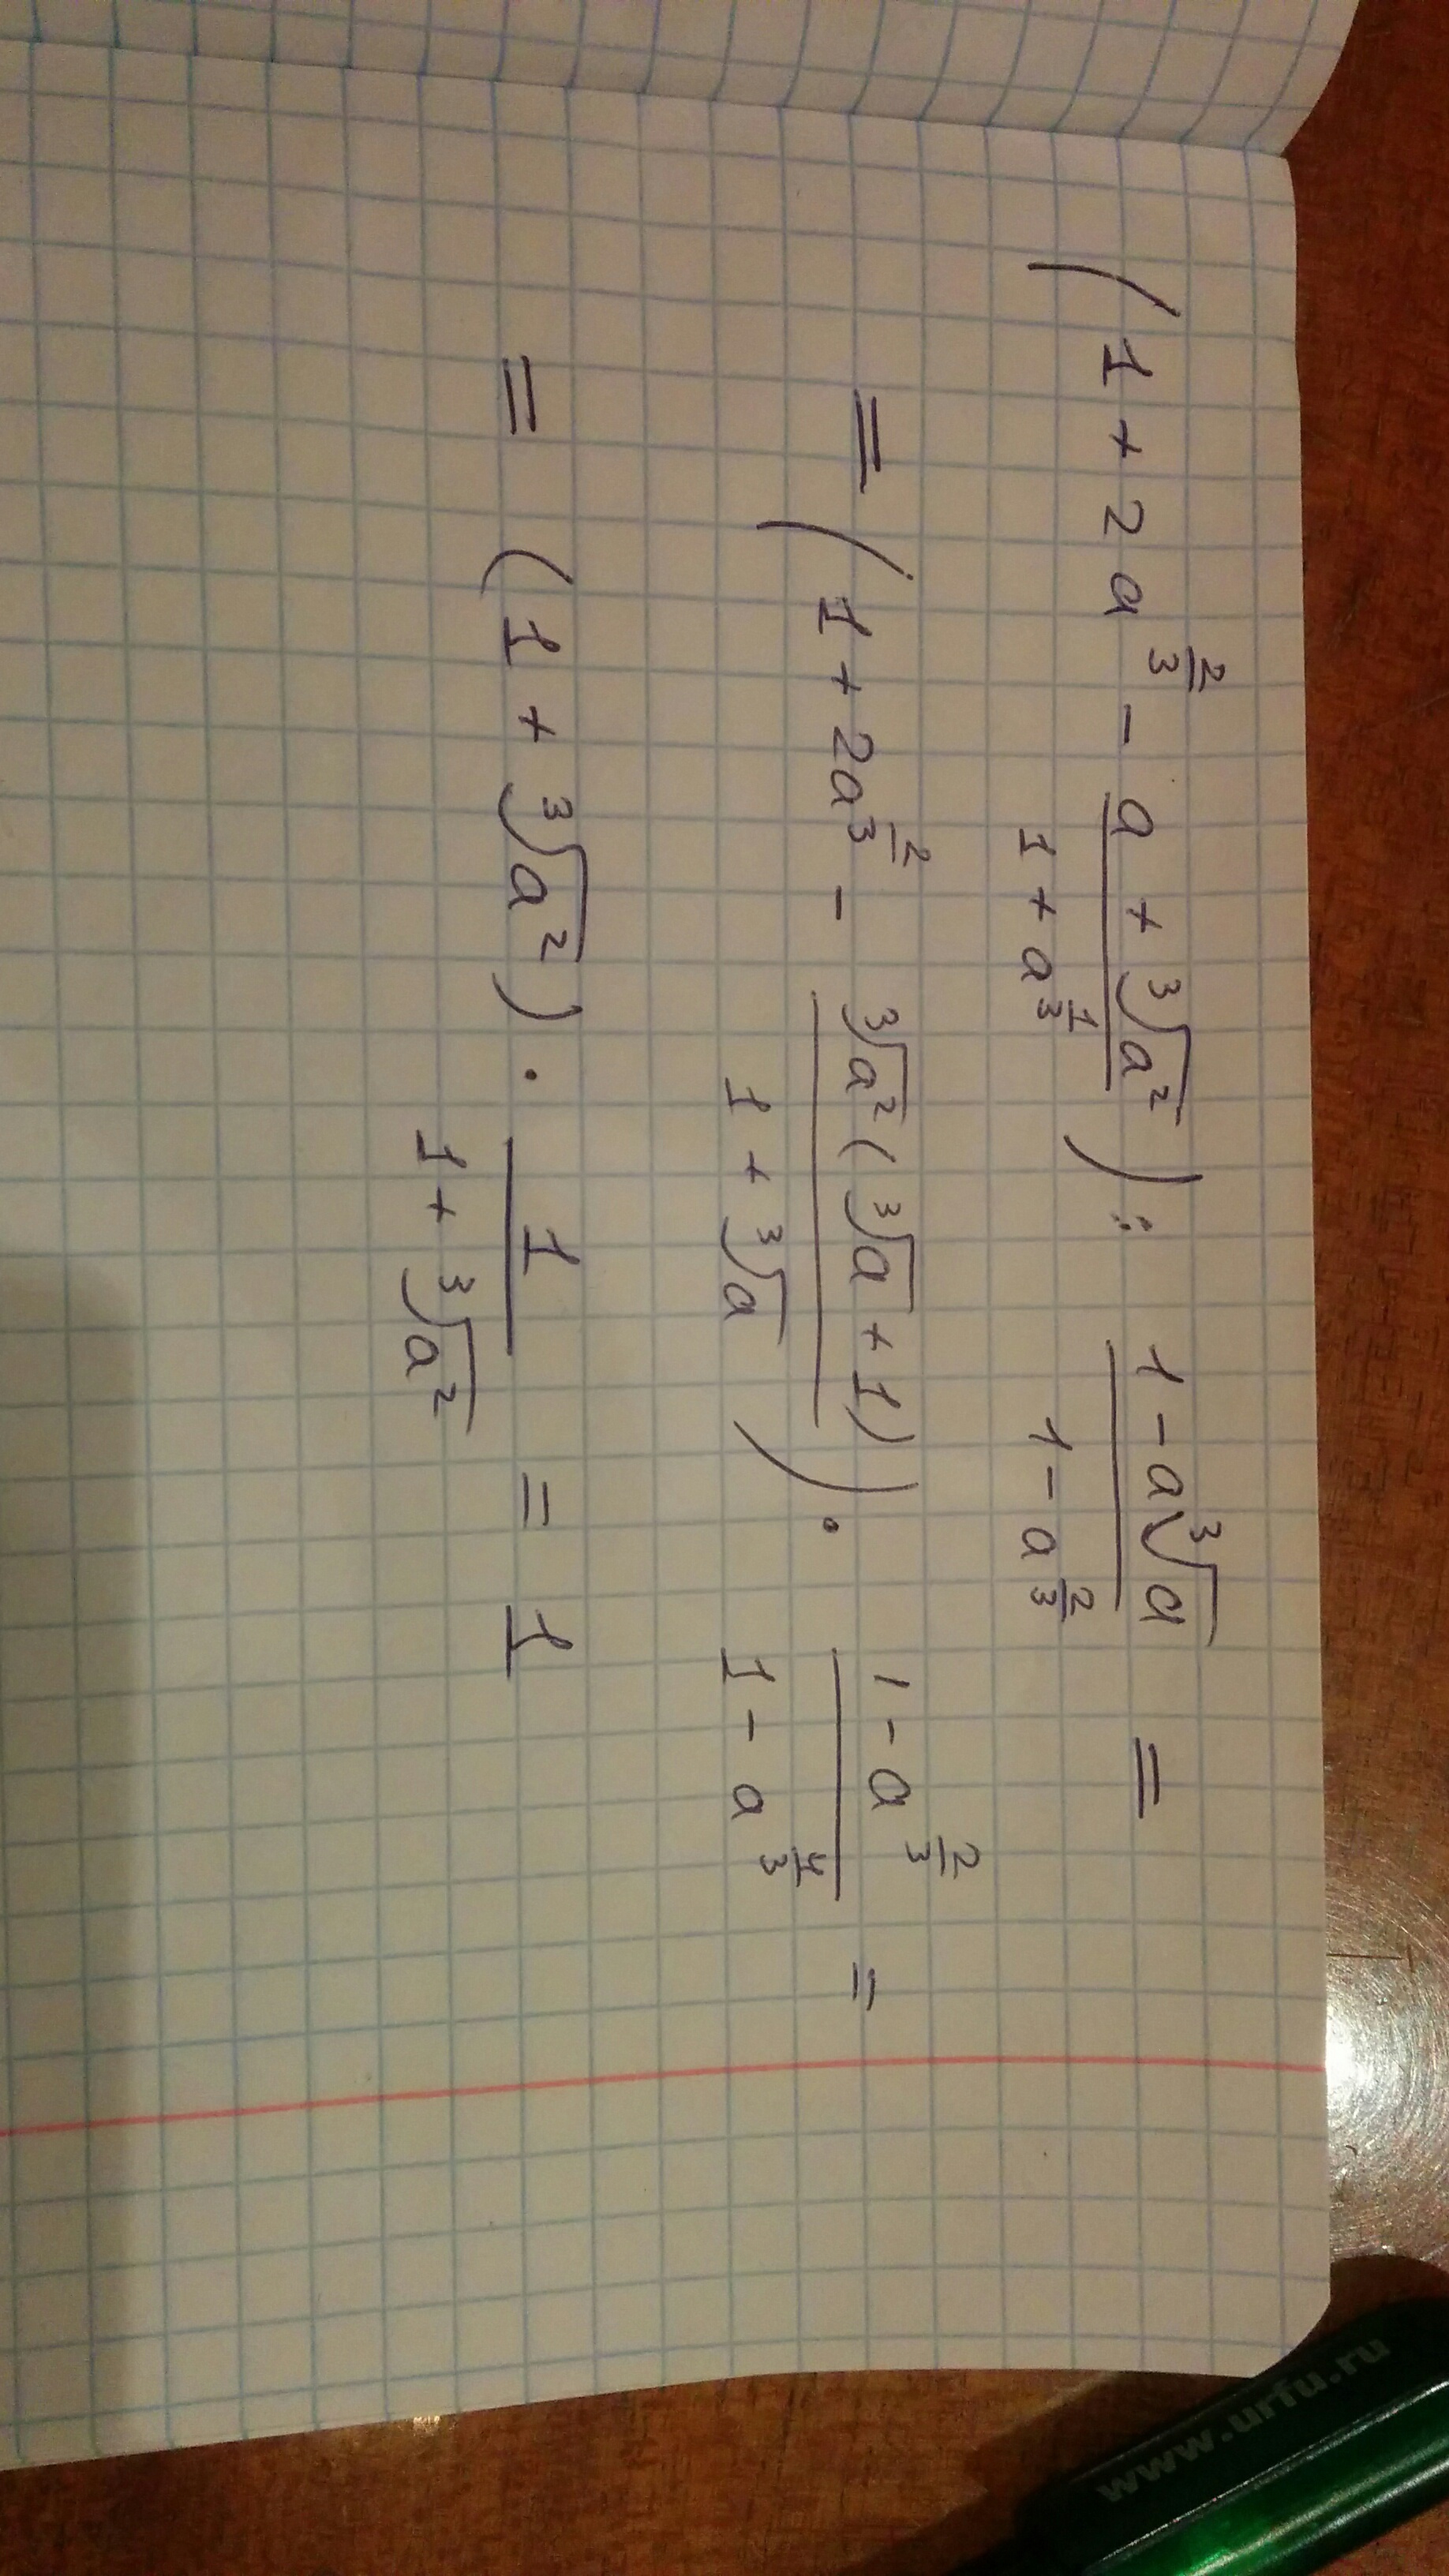 (1 + 2a^{2/3} - \frac{a + \sqrt[3]{a^2}}{1 + a^{1/3}}) : \frac{1 - a\sqrt[3]{a}}{1 - a^{2/3}} =
= (1 + 2a^{2/3} - \frac{\sqrt[3]{a^2}(\sqrt[3]{a} + 1)}{1 + \sqrt[3]{a}}) · \frac{1 - a^{2/3}}{1 - a^{4/3}} =
= (1 + \sqrt[3]{a^2}) · \frac{1}{1 + \sqrt[3]{a^2}} = 1
www.urfu.ru